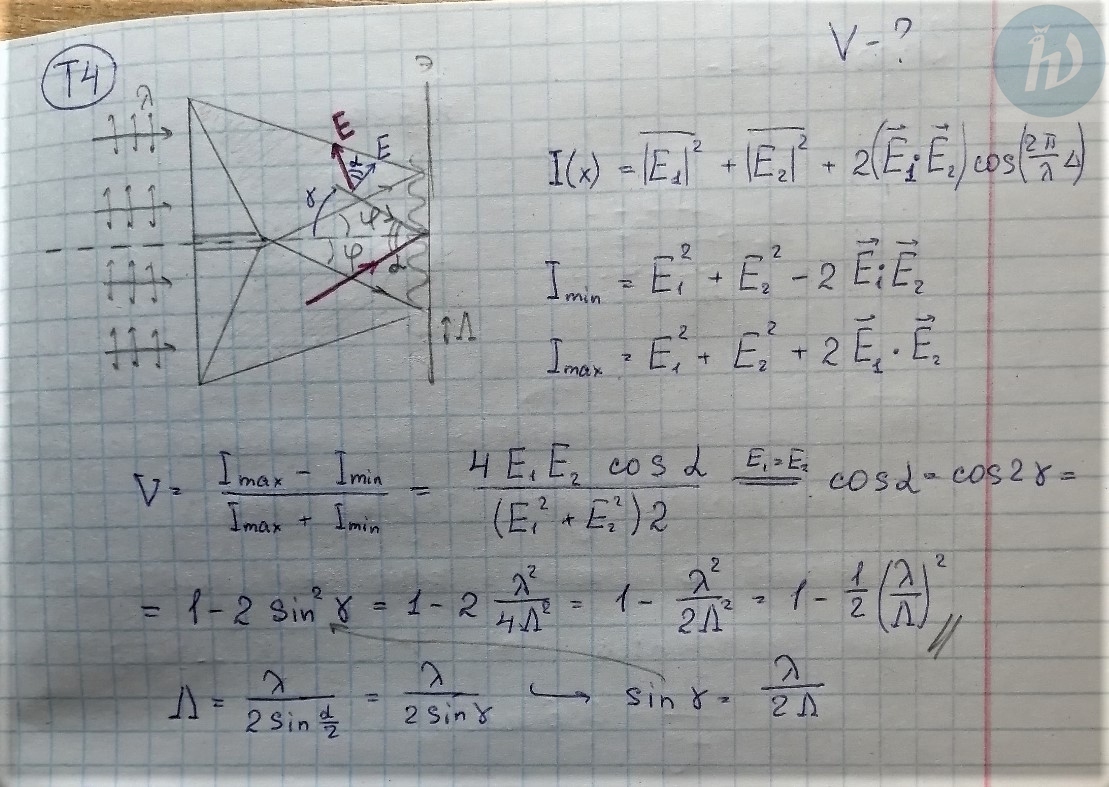 T4
V - ?
λ
Э
E
α
E
γ
φ
φ
α
Λ
I(x) = |E₁|² + |E₂|² + 2(E⃗₁·E⃗₂) cos(2π/λ Δ)
I min = E₁² + E₂² - 2 E⃗₁·E⃗₂
I max = E₁² + E₂² + 2 E⃗₁·E⃗₂
V = (I max - I min)/(I max + I min) = (4 E₁ E₂ cos α)/((E₁² + E₂²) 2) = E₁ = E₂ cos α = cos 2γ =
= 1 - 2 sin² γ = 1 - 2 λ²/(4Λ²) = 1 - λ²/(2Λ²) = 1 - 1/2 (λ/Λ)² //
Λ = λ/(2 sin α/2) = λ/(2 sin γ) → sin γ = λ/(2Λ)